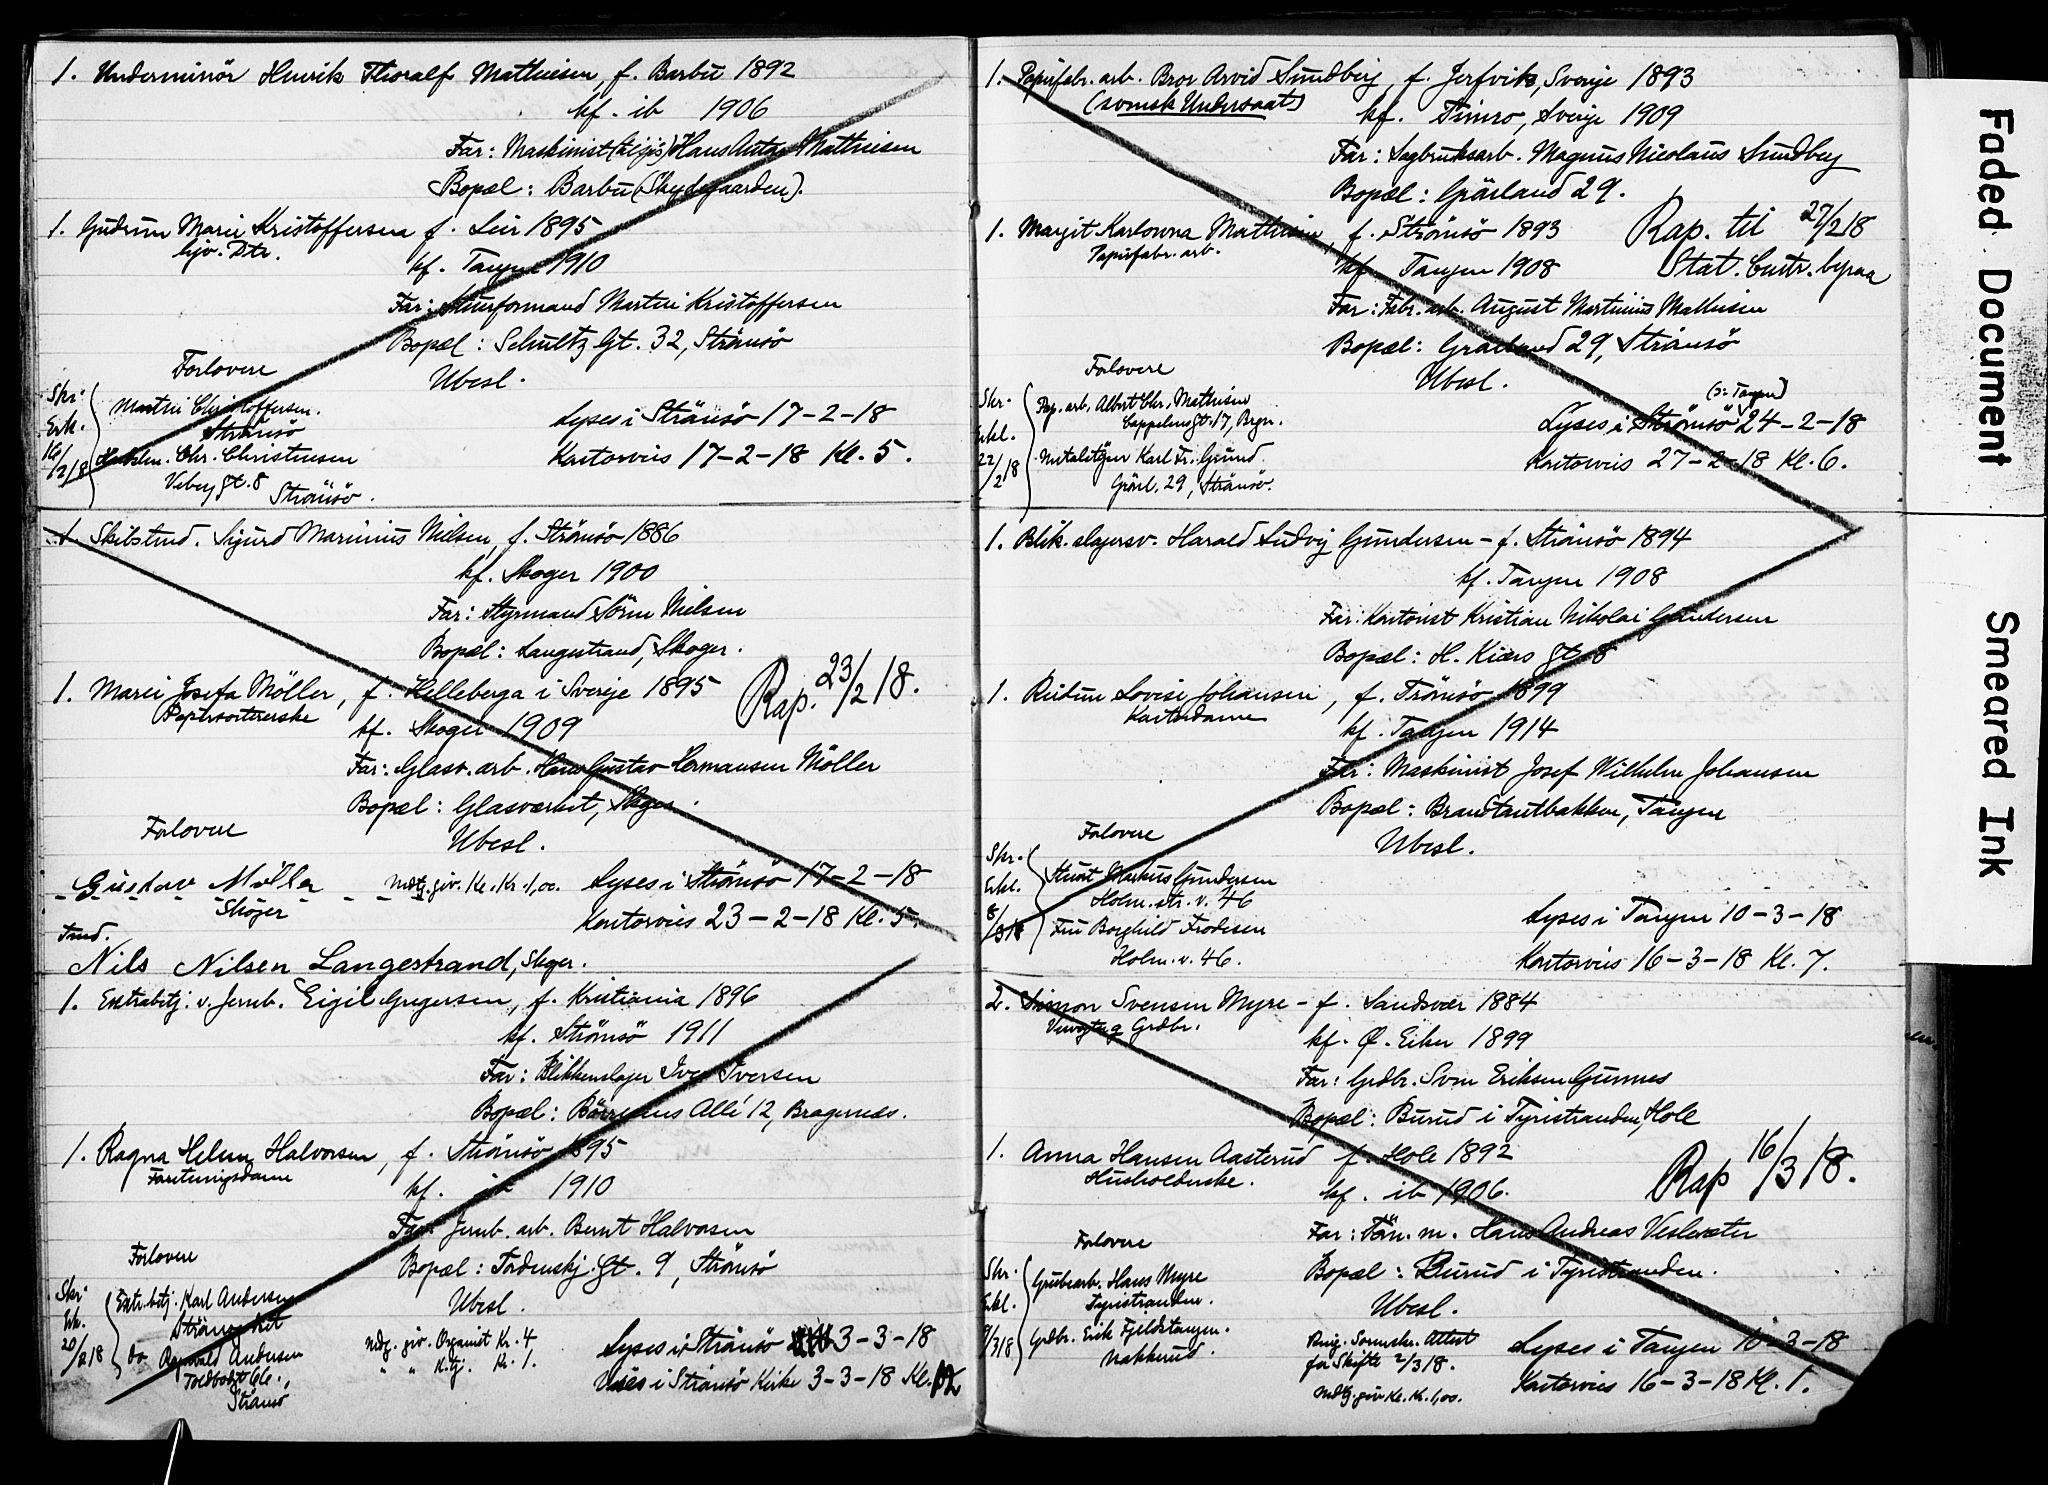 1. Underminör Henrik Thoralf Mathiesen, f. Barbu 1892
kf. ib 1906
Far: Maskinist Hans Anton Mathiesen
Bopæl: Barbu (Skydegaarden).
1. Gudrun Marie Kristoffersen f. Lier 1895
hjv. Dtr.
kf. Tangen 1910
Far: Stuerformand Martin Kristoffersen
Bopæl: Schultz Gt. 32, Strömsö
Forlovere
Ubesl.
Skr.
Erk.
16/2/18
Martin Christoffersen.
Strömsö
Chr. Christensen
Viberg gt. 8
Strömsö.
Lyses i Strömsö 17-2-18
Kontorvies 17-2-18 Kl. 5.
1. Skibstmd. Sigurd Marinius Nielsen, f. Strömsö 1886
kf. Skoger 1900
Far: Styrmand Sören Nielsen
Bopæl: Langestrand, Skoger.
1. Marie Josefa Möller, f. Helleberga i Sverje 1895
Papirsortererske
Rap. 23/2 18.
kf. Skoger 1909
Far: Glasv. arb. Hans Gustav Hermansen Möller
Bopæl: Glasværket, Skoger.
Forlovere
Ubesl.
Gustav Möller
Skoger
Mdtg. giv. Kl. Kr. 1,00.
Lyses i Strömsö 17-2-18
Kontorvies 23-2-18 Kl. 5.
Tmd.
Nils Nilsen Langestrand, Skger.
1. Extrabetj. v. Jernb. Eigil Gregersen, f. Kristiania 1896
kf. Strömsö 1911
Far: Blikkenslager Iver Iversen
Bopæl: Börresens Allé 12, Bragernæs.
1. Ragna Helene Halvorsen, f. Strömsö 1895
Forretningsdame
kf. ib 1910
Far: Jernb. arb. Bernt Halvorsen
Bopæl: Tordenskj. Gt. 9, Strömsö
Forlovere
Ubesl.
Skr.
Erk.
20/2 18
Extr. betj. Karl Andersen
Strömsö
do Ragnvald Andersen
Toldbodgt 61c.,
Strömsö
Mdg. giv. Organist Kr. 4
" " K.tj. Kr. 1.
Lyses i Strömsö 3-3-18
Vies i Strömsö Kirke 3-3-18 Kl. 12
1. Papirfabr. arb. Bror Arvid Sundberg, f. Jerfvik, Sverje 1893
(svensk Undersaat)
kf. Timro, Sverje 1909
Far: Sagbruksarb. Magnus Nicolaus Sundberg
Bopæl: Grönland 29.
1. Margit Karlovna Mathisen, f. Strömsö 1893
Papirfabr. arb.
Rap. til 27/2 18
Stat. Centr. byraa
kf. Tangen 1908
Far: Fabr. arb. August Martinius Mathisen
Bopæl: Grönland 29, Strömsö
Forlovere
Ubesl.
Skr.
Erkl.
22/2 18
Pap. arb. Albert Chr. Mathisen
Cappelens gt. 17, Brgn.
Metalstöper Karl Fr. Grund.
Grönl. 29, Strömsö.
(o: Tangen)
Lyses i Strömsö 24-2-18
Kontorvies 27-2-18 Kl. 6.
1. Blik. slagersv. Harald Ludvig Gundersen - f. Strömsö 1894
kf. Tangen 1908
Far: Kontorist Kristian Nikolai Gundersen
Bopæl: H. Kiærs gt. 8
1. Reidun Lovise Johansen, f. Tromsö 1899
Kontordame
kf. Tangen 1914
Far: Maskinist Josef Wilhelm Johansen
Bopæl: Brandtentbakken, Tangen
Forlovere
Ubesl.
Skr.
Erkl.
8/3 18
Markus Gundersen
Holm. str. v. 46
Fru Borghild Frodesen
Holm. v. 46.
Lyses i Tangen 10-3-18
Kontorvies 16-3-18 Kl. 7.
2. Simon Svensen Myre - f. Sandsvær 1884
Grdbr.
kf. Ø. Eiker 1899
Far: Grdbr. Sven Eriksen Gunnes
Bopæl: Burud i Tyristranden, Hole
1. Anna Hansen Aasterud f. Hole 1892
Husholderske.
Rap 16/3 18.
kf. ib 1906.
Far: Töm. m. Hans Andreas Vesleseter
Forlovere
Bopæl: Burud i Tyristranden.
Ubesl.
Skr.
Erkl.
9/3 18
Grubearb. Hans Myre
Tyristranden.
Grdbr. Erik Fjeldstangen.
Nakkerud.
Ring. Sorenskr. Attest
for Skifte 2/3 18.
Mdtg. giv Kl. Kr. 1,00.
Lyses i Tangen 10-3-18
Kontorvies 16-3-18 Kl. 1.
Faded Document
Smeared Ink